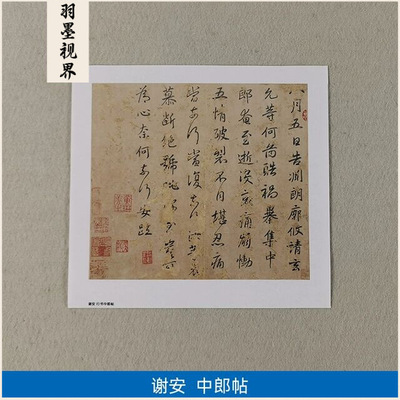 羽墨视界
八月五日告渊朗廓攸靖玄
允等何图酷祸暴集中
郎奄至逝没哀痛崩恸
五情破裂不自堪忍痛
当奈何当复奈何汝等哀
慕断绝号咷深至岂可
为心奈何奈何安疏
谢安 中郎帖